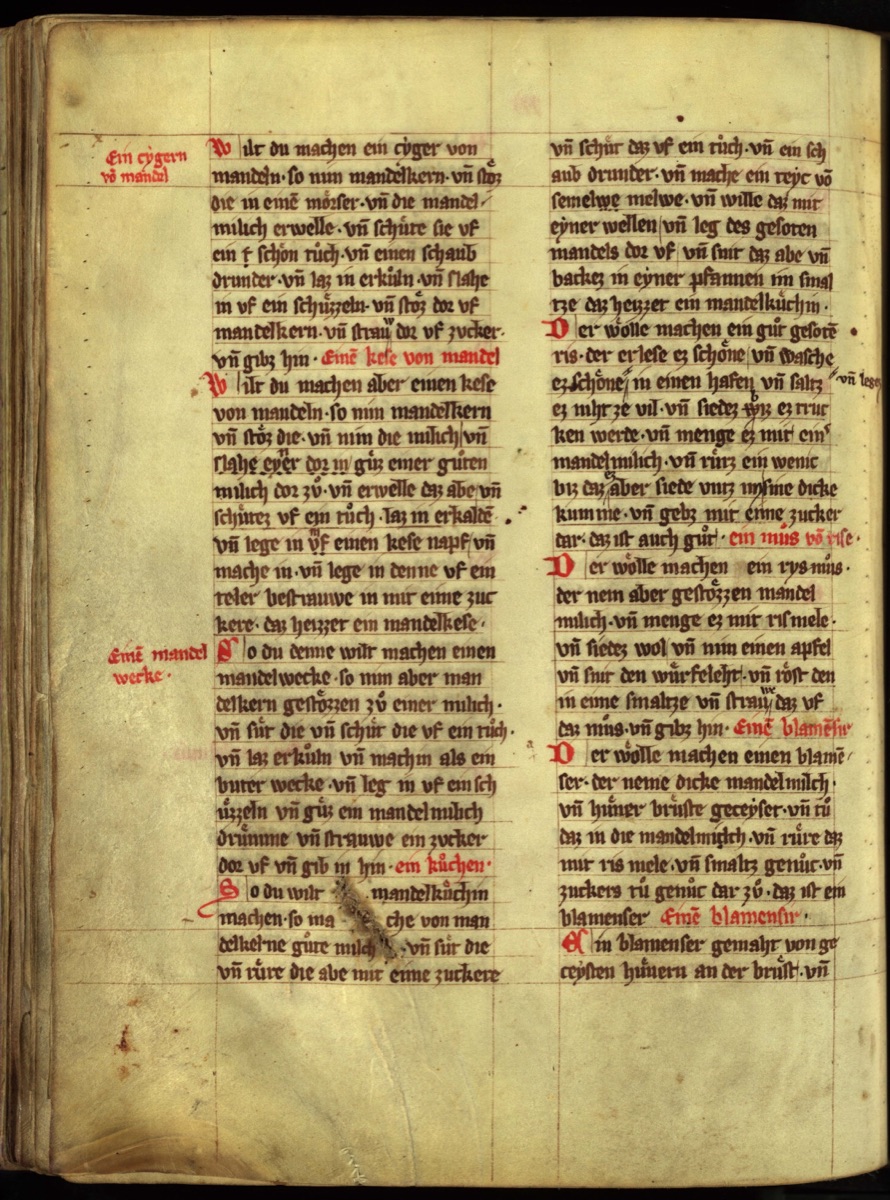 Ein cẏgern
võ mandel
Wilt du machen ein cẏger von
mandeln · so nim mandelkern · vñ stoͤz
die in einē moͤrser · vñ die mandel
milich erwelle · vñ schuͤte sie vf
ein schoͤn tuͦch · vñ einen schaub
drunder · vñ laz in erkuͤln · vñ slahe
in vf ein schuͤzzeln · vñ stoͤz dor vf
mandelkern · vñ strauw dor vf zvcker ·
vñ gibz hin · Einē kese von mandel
Wilt du machen aber einen kese
von mandeln · so nim mandelkern
vñ stoͤz die · vñ nim die milich vñ
slahe eyer dor in guͤz einer guͤten
milich dor zvͦ · vñ erwelle daz abe vñ
schuͤtez vf ein tuͦch · laz in erkaldē
vñ lege in vf einen kese napf vñ
mache in · vñ lege in denne vf ein
teler bestrauwe in mit eime zuc
kere · daz heizzet ein mandelkese ·
Einē mandel
wecke ·
So du denne wilt machen einen
mandelwecke · so nim aber man
delkern gestoͤzzen zvͦ einer milich ·
vñ suͤt die vñ schuͤt die vf ein tuͦch ·
vñ laz erkuͤln vñ machin als ein
buter wecke · vñ leg in vf ein sch
uͤzzeln vñ guͤz ein mandelmilich
druͤmme vñ strauwe ein zvcker
dor vf vñ gib in hin · ein kuͦchen ·
So du wilt mandelkuͦchin
machen · so ma che von man
delkerne guͤte milch · vñ suͤt die
vñ ruͤre die abe mit eime zuckere
vñ schuͤt daz vf ein tuͦch · vñ ein sch
aub drunder · vñ mache ein teyc võ
semelwe melwe · vñ wille daz mit
eẏner wellen vñ leg des gesoten
mandels dor vf vñ snit daz abe vñ
backez in eẏner pfannen im smal
tze daz heizzet ein mandelkuͦchin ·
Der woͤlle machen ein guͦt gesotē
ris · der erlese ez schoͤne vñ wasche
ez schoͤne in einen hafen vñ saltz vñ lege
ez niht ze vil · vñ siedez biz ez truc
ken werde · vñ menge ez mit ein᷒
mandelmilich · vñ ruͤrz ein wenic
biz daz ez aber siede vntz in sine dicke
kumme · vñ gebz mit eime zucker
dar · daz ist auch guͦt · ein muͦs võ rise ·
Der woͤlle machen ein rys muͦs ·
der nem aber gestoͤzzen mandel
milich · vñ menge ez mit ris mele ·
vñ siedez wol vñ nim einen apfel
vñ snit den wuͤrfeleht · vñ roͤst den
in eime smaltze vñ strauwe daz vf
daz muͦs · vñ gibz hin · Einē blamēsir
Der woͤlle machen einen blamē
ser · der neme dicke mandelmilch ·
vñ huͤner bruͤste geceyset · vñ tuͦ
daz in die mandelmilch · vñ ruͤre daz
mit ris mele · vñ smaltz genuͦc · vñ
zuckers tuͦ genuͦc dar zvͦ · daz ist ein
blamenser Einē blamensir ·
Ein blamenser gemaht von ge
ceẏsten huͤnern an der bruͤst · vñ